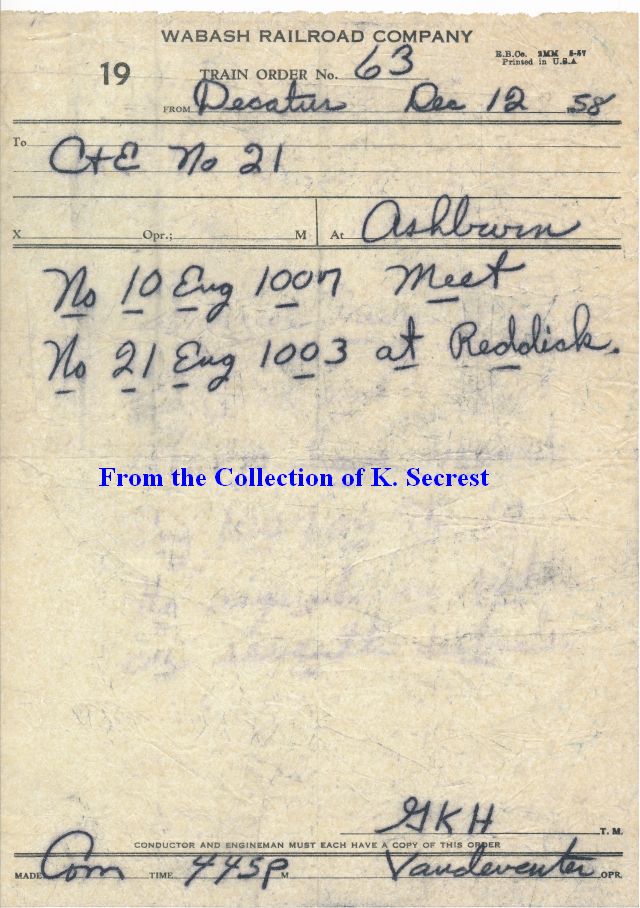 WABASH RAILROAD COMPANY
R.B.Co. 2MM 5-57
Printed in U.S.A.
19 TRAIN ORDER No. 63
FROM Decatur Dec 12 1958
To C+E No 21
X Opr.; M At Ashburn
No 10 Eng 1007 Meet
No 21 Eng 1003 at Reddick.
From the Collection of K. Secrest
GKH T. M.
CONDUCTOR AND ENGINEMAN MUST EACH HAVE A COPY OF THIS ORDER
MADE Com TIME 445P M Vandeventer OPR.